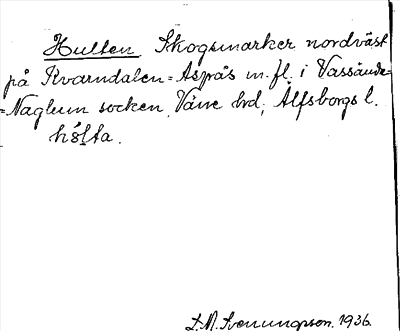 Hulten Skogsmarker nordväst
på Kvarndalen=Aspås m.fl. i Vassände=
=Naglum socken, Väne hd; Älfsborgs l.
hö̀lta.
L.M. Svenungsson. 1936.